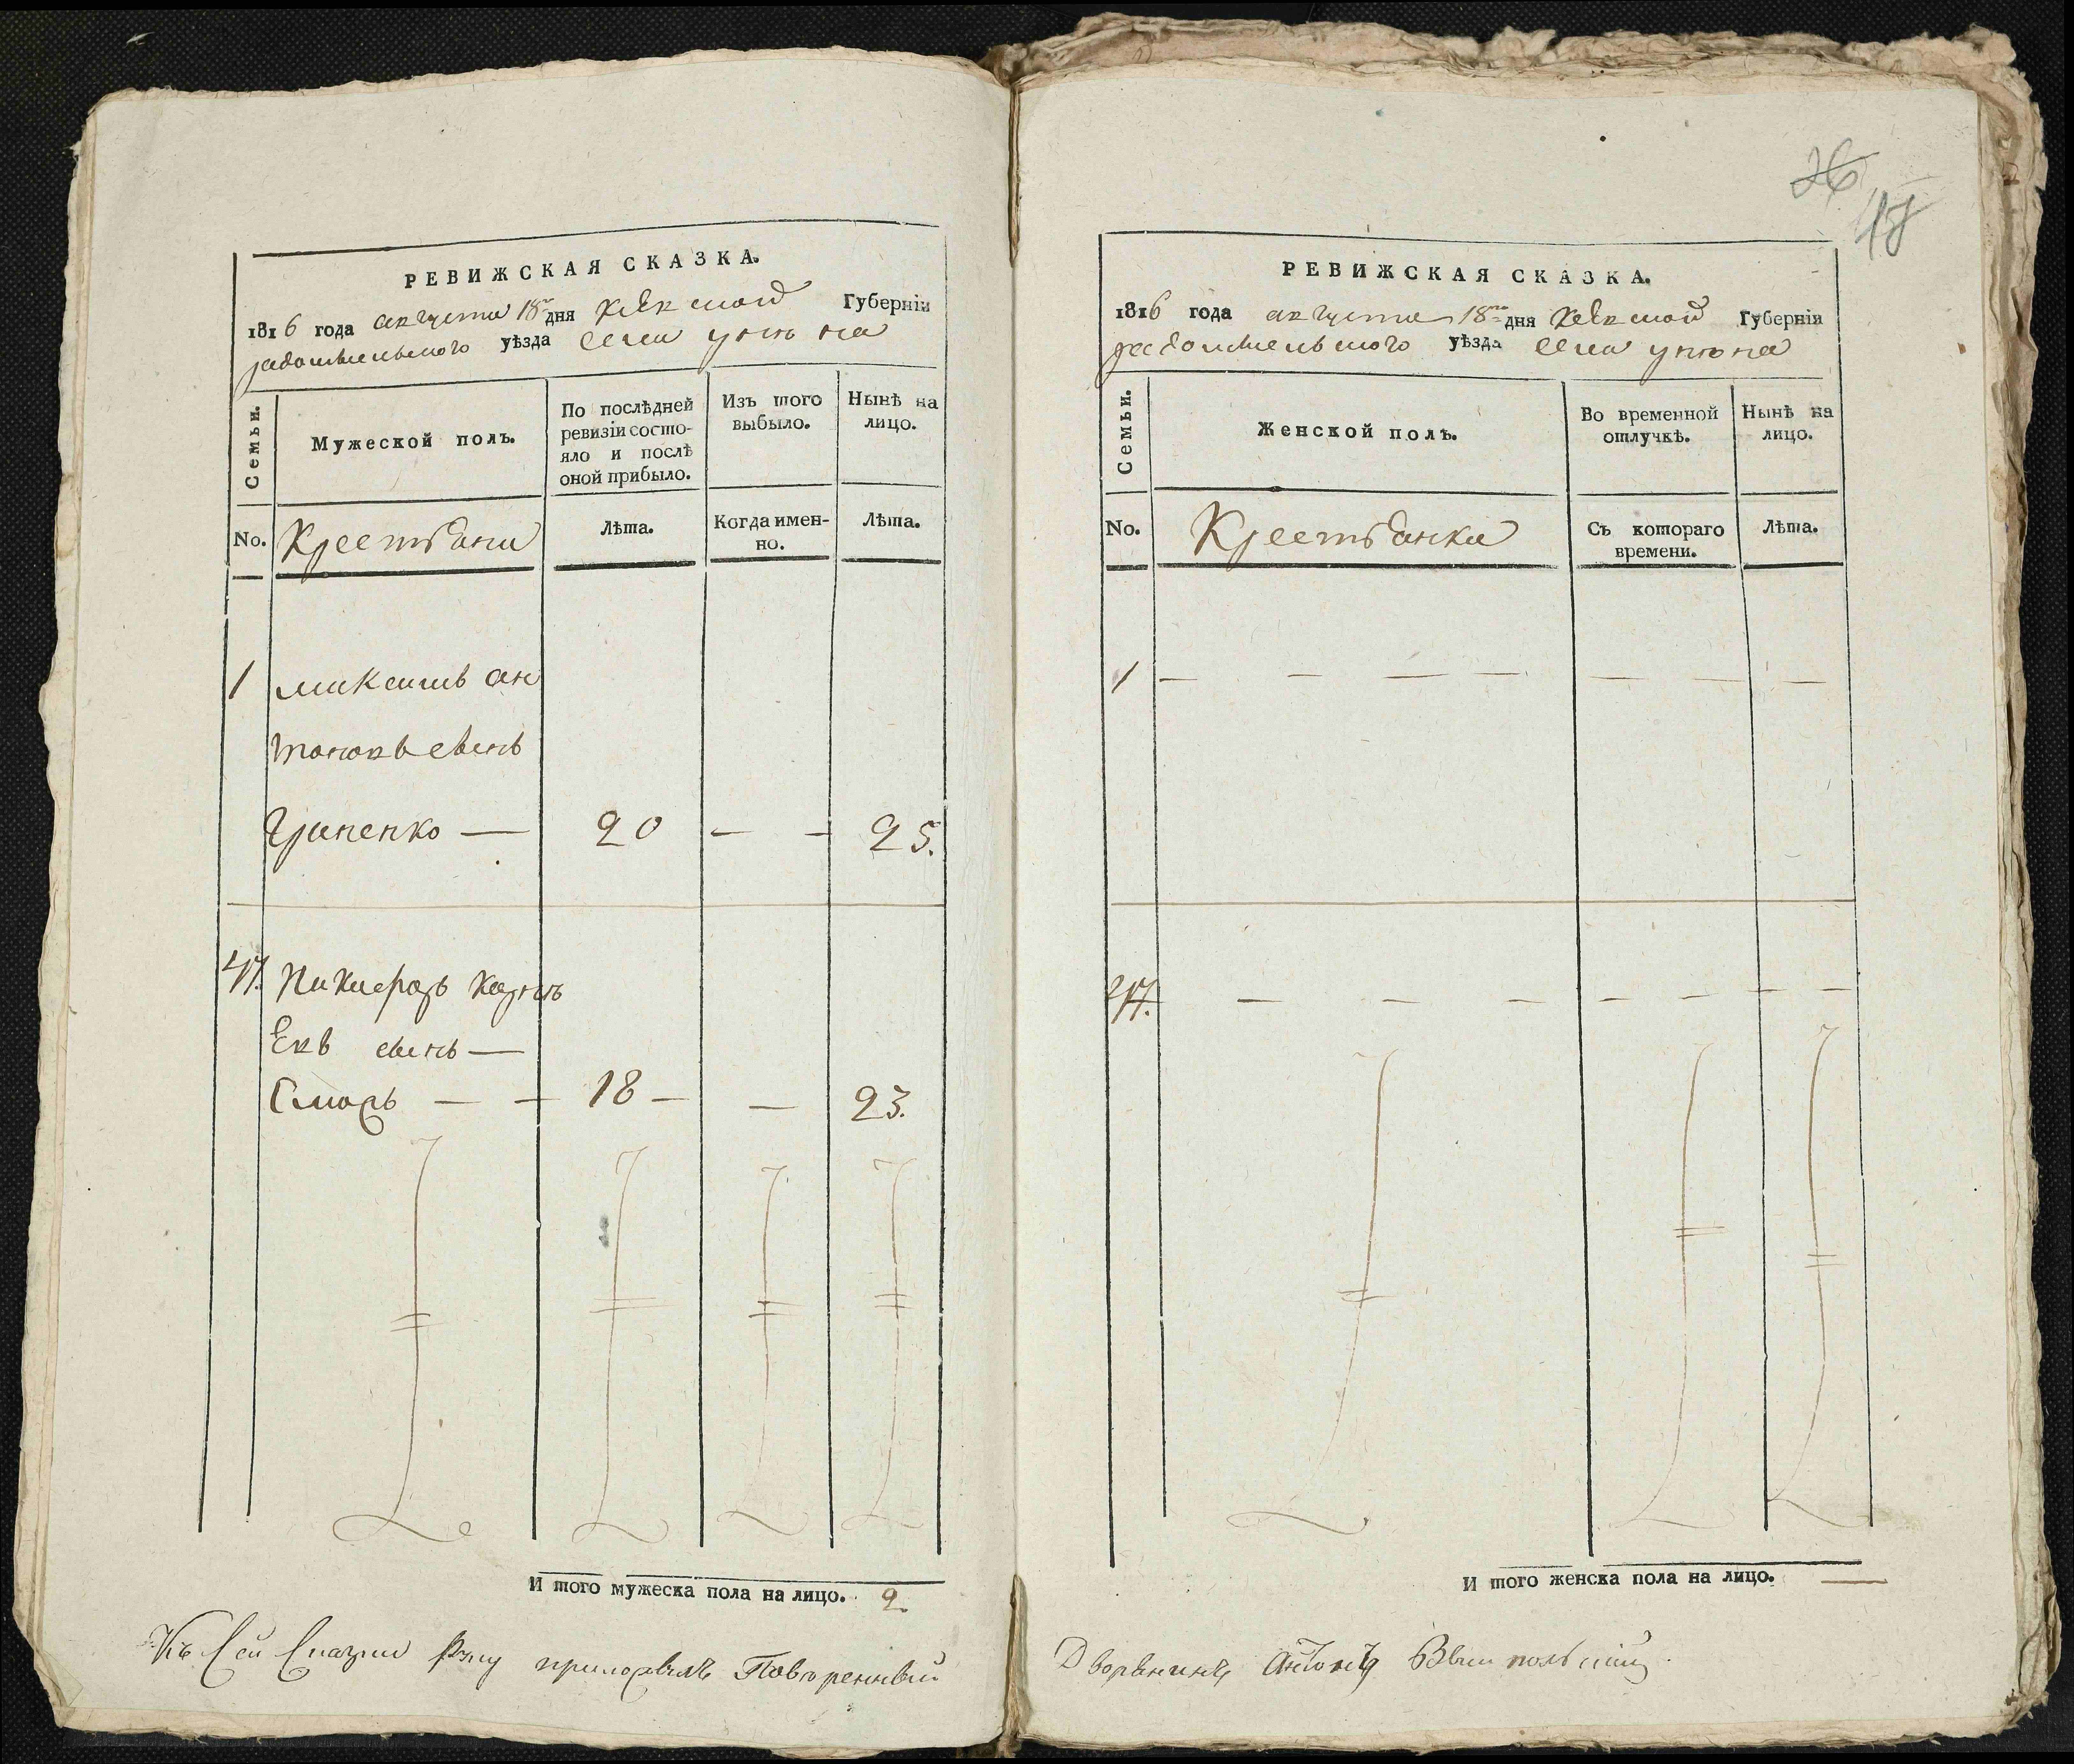 РЕВИЖСКАЯ СКАЗКА.
1816 года августа 18го дня киевской Губерніи
радомысльского уѣзда села унина
Семьи.
Мужеской полъ.
По послѣдней ревизіи состояло и послѣ оной прибыло.
Изъ того выбыло.
Нынѣ на лицо.
No.
Крестьяни
Лѣта.
Когда именно.
Лѣта.
1 максимъ ан
тоновъ сынъ
Гриненко — 20 — — 25.
47.
сынъ —
18 — — 23.
И того мужеска пола на лицо. 2
Къ Сей Сказки руку приложилъ Повѣренный
26
РЕВИЖСКАЯ СКАЗКА.
1816 года августа 18го дня киевской Губерніи
радомысльского уѣзда села унина
Семьи.
Женской полъ.
Во временной отлучкѣ.
Нынѣ на лицо.
No.
Крестьянки
Съ котораго времени.
Лѣта.
1 — — — — — — —
47. — — — — — — —
И того женска пола на лицо. —
Дворянинъ Антонъ